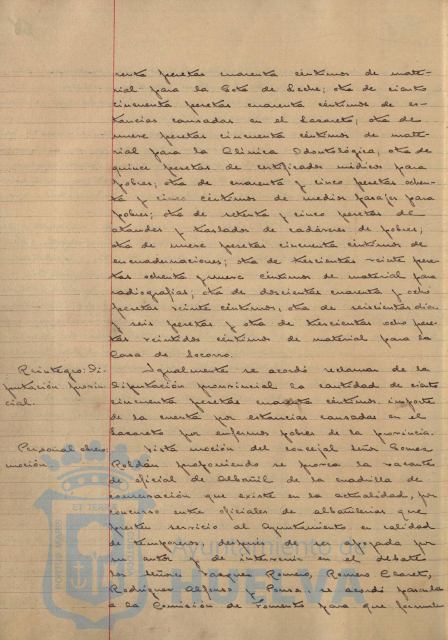 renta pesetas cuarenta céntimos de mate-
rial para la Gota de Leche; otra de ciento
cincuenta pesetas cuarenta céntimos de es-
tancias causadas en el Lazareto; otra de
nueve pesetas cincuenta céntimos de mate-
rial para la Clínica Odontológica; otra de
quince pesetas de certificados médicos para
pobres; otra de cuarenta y cinco pesetas ochen-
ta y cinco céntimos de medios pasajes para
pobres; otra de setenta y cinco pesetas de
ataudes y traslados de cadáveres de pobres;
otra de nueve pesetas cincuenta céntimos de
encuadernaciones; otra de trescientas veinte pese-
tas ochenta y nueve céntimos de material para
radiografías; otra de doscientas cuarenta y ocho
pesetas veinte céntimos; otra de seiscientas diez
y seis pesetas y otra de trescientas ocho pese-
tas veintidos céntimos de material para la
Casa de Socorro.
Reintegro: Di-
putación provin-
cial.
Igualmente se acordó reclamar de la
Diputación provincial la cantidad de ciento
cincuenta pesetas cuarenta céntimos, importe
de la cuenta por estancias causadas en el
Lazareto por enfermos pobres de la provincia.
Personal:
moción
Vista moción del concejal señor Gomez
Roldán proponiendo se provea la vacante
de oficial de Albañil de la cuadrilla de
conservación que existe en la actualidad, por
concurso entre oficiales de albañilería que
presten servicio al Ayuntamiento en calidad
de temporeros, después de ser apoyada por
su autor y de intervenir en el debate
los señores Vazquez Romero, Romero Claret,
Rodriguez Alfonso y Ponce, se acordó pasarla
a la Comisión de Fomento para que formule
Ayuntamiento de
HUELVA